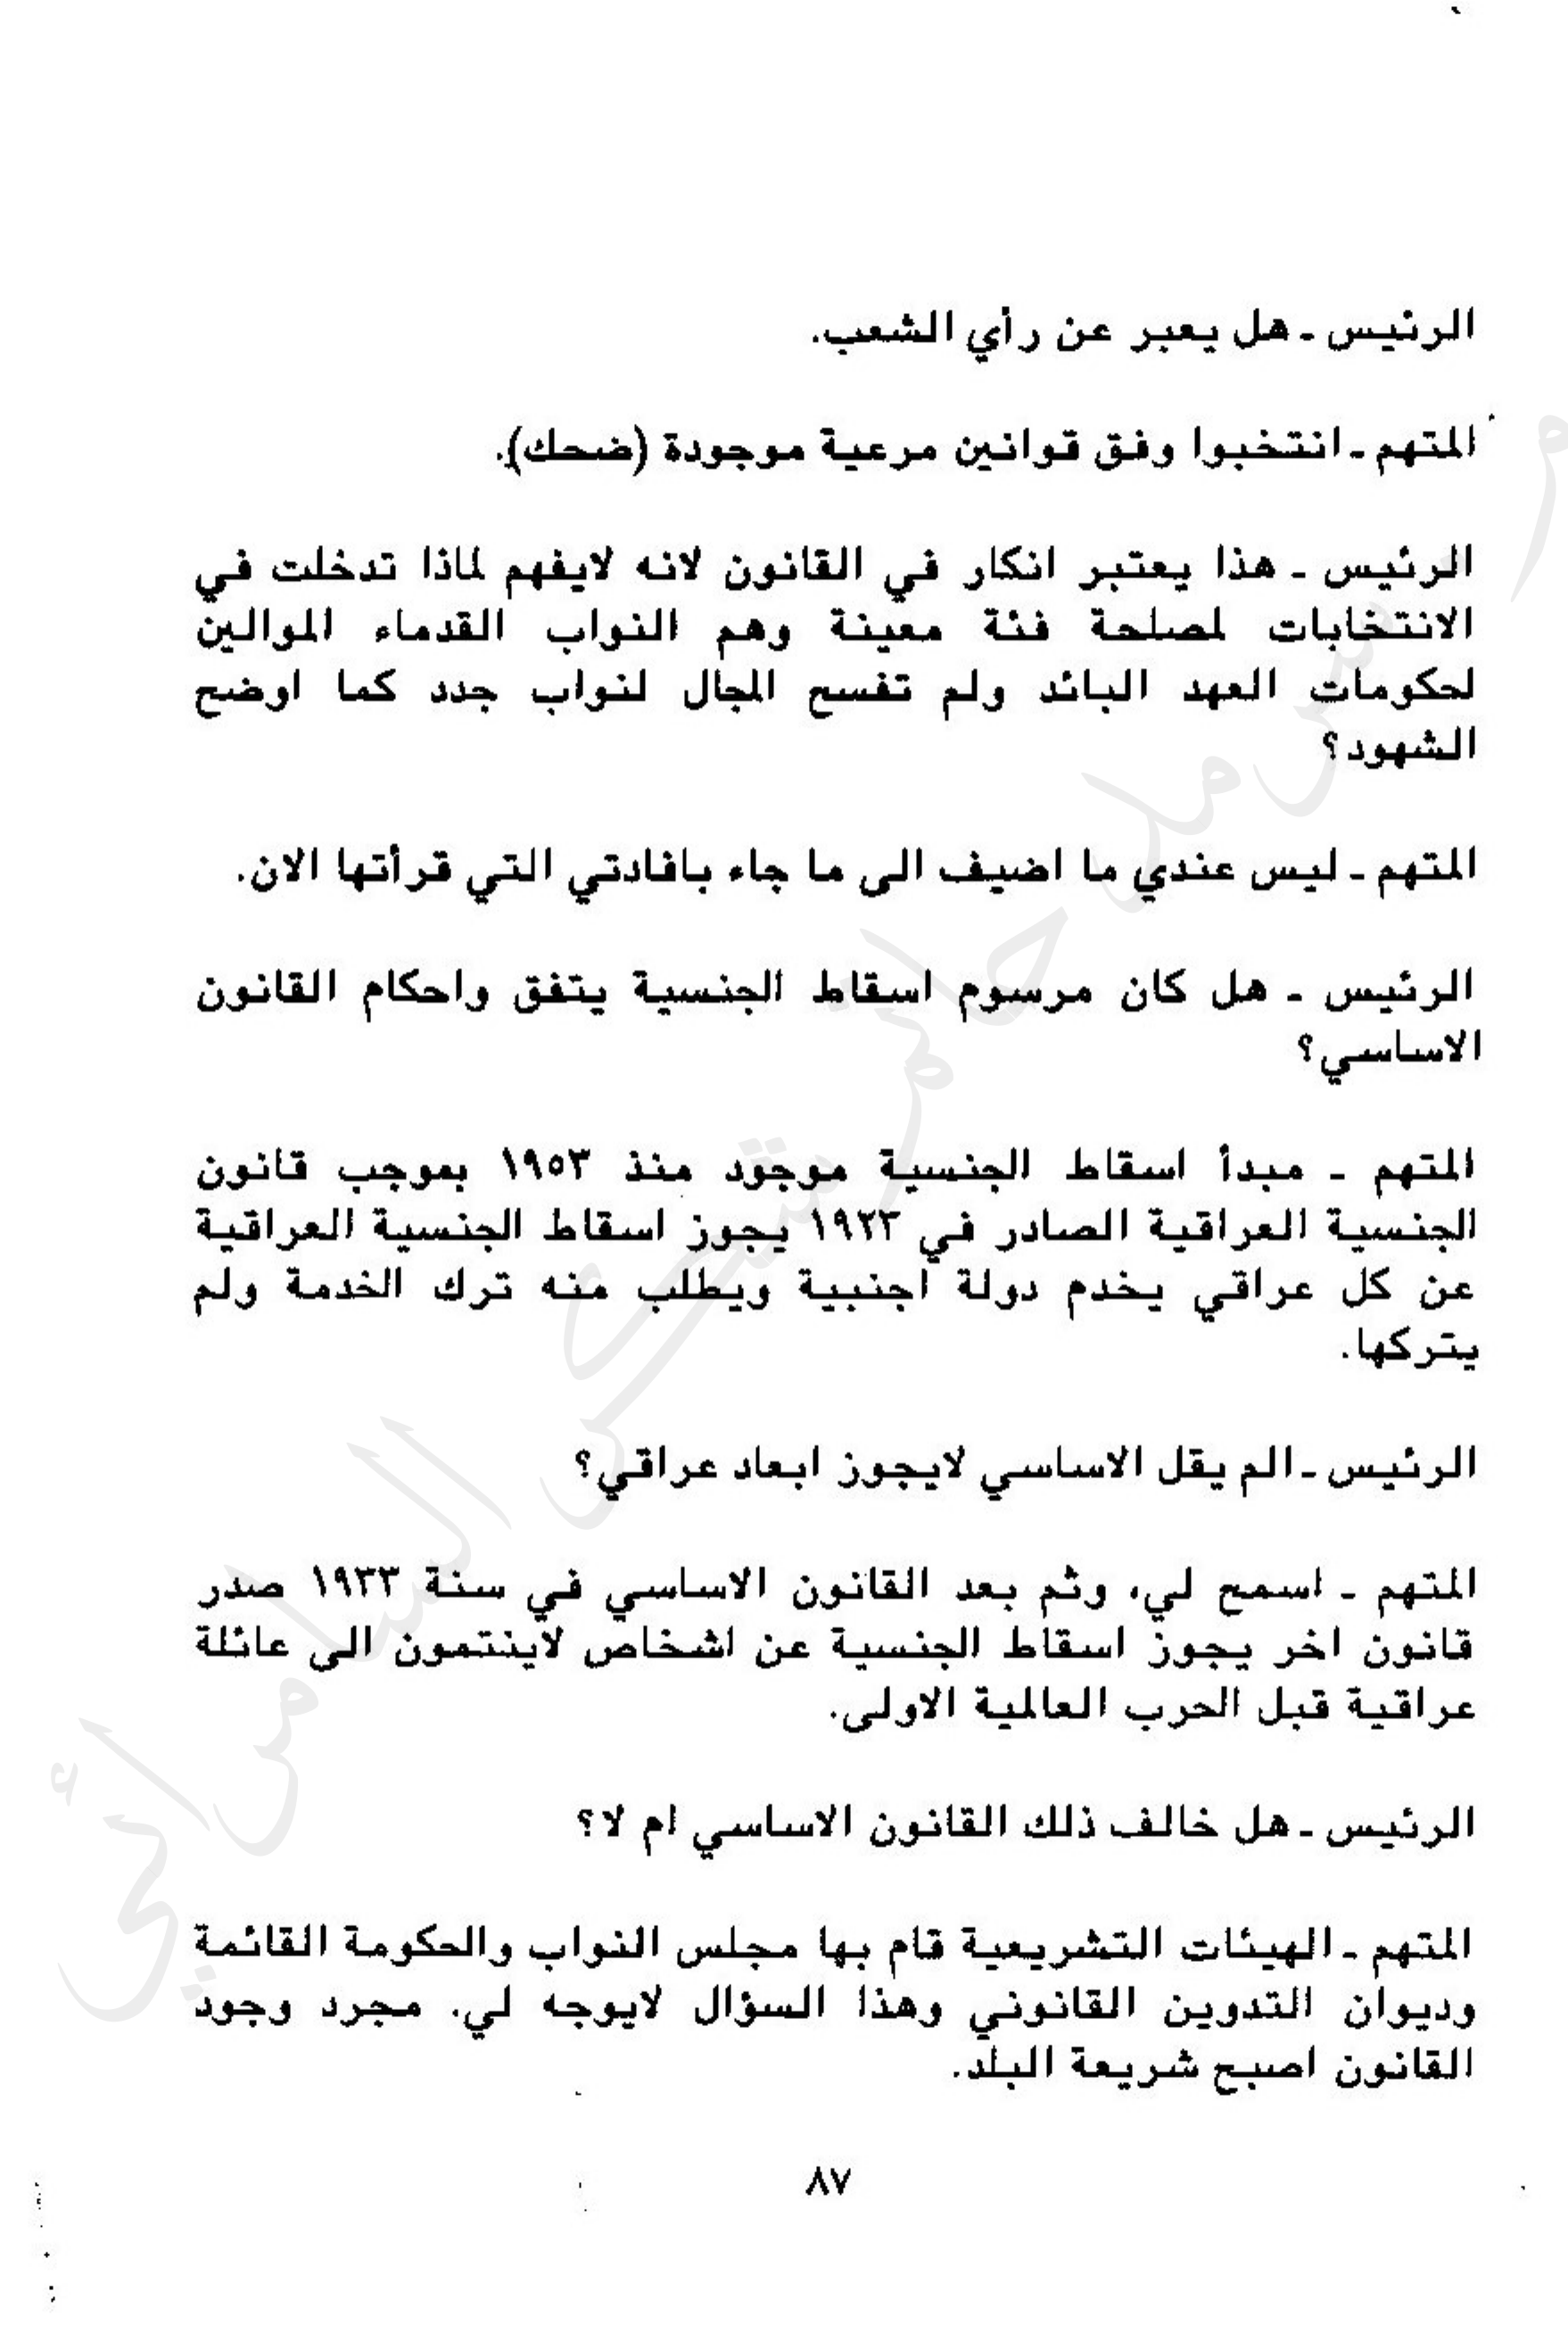 الرئيس ـ هل يعبر عن رأي الشعب.
المتهم ـ انتخبوا وفق قوانين مرعية موجودة (ضحك).
الرئيس ـ هذا يعتبر انكار في القانون لانه لايفهم لماذا تدخلت في
الانتخابات لمصلحة فئة معينة وهم النواب القدماء الموالين
لحكومات العهد البائد ولم تفسح المجال لنواب جدد كما اوضح
الشهود؟
المتهم ـ ليس عندي ما اضيف الى ما جاء بافادتي التي قرأتها الان.
الرئيس ـ هل كان مرسوم اسقاط الجنسية يتفق واحكام القانون
الاساسي؟
المتهم ـ مبدأ اسقاط الجنسية موجود منذ ١٩٥٣ بموجب قانون
الجنسية العراقية الصادر في ١٩٢٣ يجوز اسقاط الجنسية العراقية
عن كل عراقي يخدم دولة اجنبية ويطلب منه ترك الخدمة ولم
يتركها.
الرئيس ـ الم يقل الاساسي لايجوز ابعاد عراقي؟
المتهم ـ اسمح لي، وثم بعد القانون الاساسي في سنة ١٩٣٣ صدر
قانون اخر يجوز اسقاط الجنسية عن اشخاص لاينتمون الى عائلة
عراقية قبل الحرب العالمية الاولى.
الرئيس ـ هل خالف ذلك القانون الاساسي ام لا؟
المتهم ـ الهيئات التشريعية قام بها مجلس النواب والحكومة القائمة
وديوان التدوين القانوني وهذا السؤال لايوجه لي. مجرد وجود
القانون اصبح شريعة البلد.
٨٧
سرمد حاتم شكر السامرائي